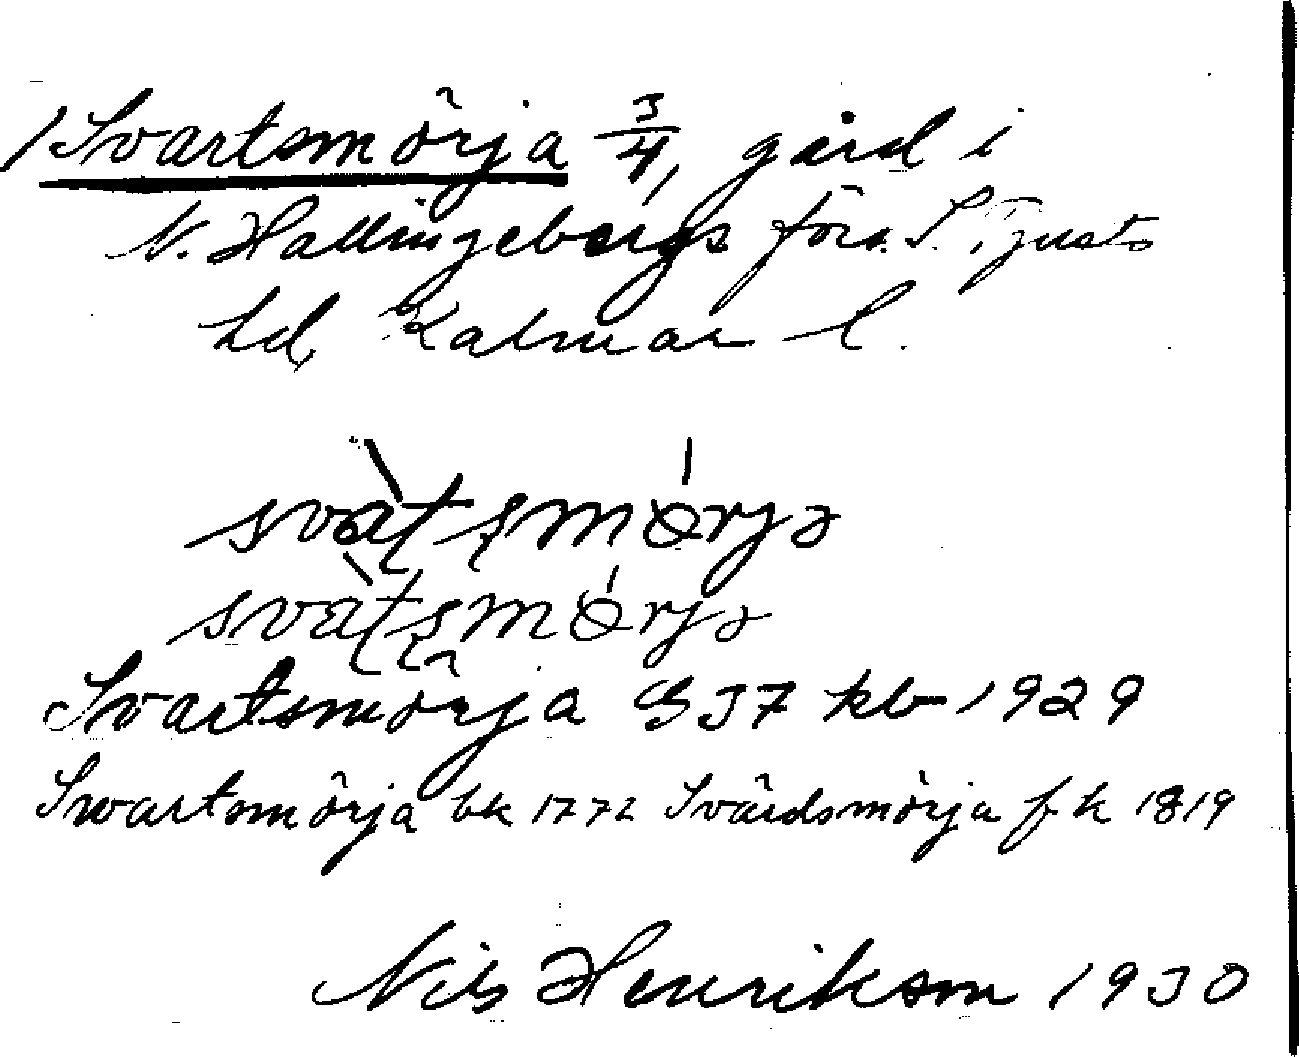 /Svartsmörja 3/4, gård i
N. Hallingebergs förs. S. Tjusts
hd, Kalmar l.
svàʈʂmö́rjə
svàʈʂmö́rjə
Svartsmörja GJ7 kb 1929
Swartsmörja bk 1772 Svärdsmörja fk 1819
Nils Henrikson 1930